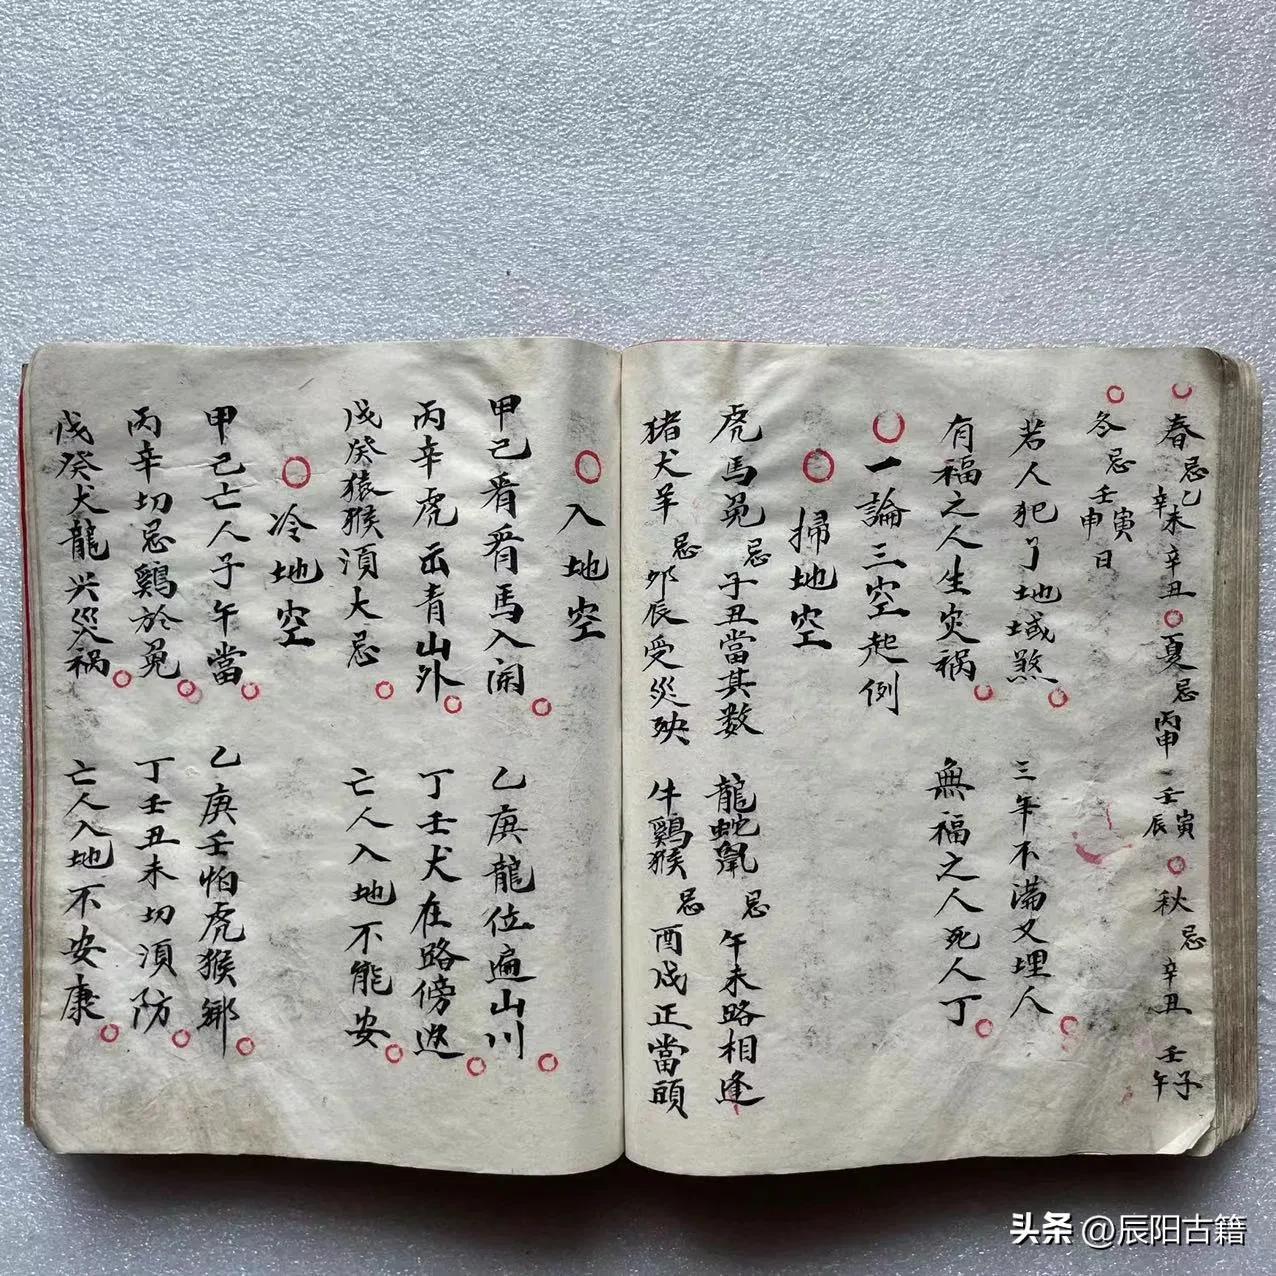 春忌乙未辛未辛丑 夏忌丙申 壬寅壬辰 秋忌辛丑 壬子壬午
冬忌壬寅壬申日
若人犯了地域煞 三年不滿又埋人
有福之人生災禍 無福之人死人丁
一論三空起例
掃地空
虎馬兔忌子丑當其数 龍蛇鼠忌午未路相逢
猪犬羊忌卯辰受災殃 牛鷄猴忌酉戌正當頭
入地空
甲己看看馬入闹 乙庚龍位遍山川
丙辛虎出青山外 丁壬犬在路傍
戊癸猿猴湏大忌 亡人入地不能安
冷地空
甲己亡人子午當 乙庚壬怕虎猴鄉
丙辛切忌鷄於兔 丁壬丑未切湏防
戊癸犬龍兴災禍 亡人入地不安康
头条 @辰阳古籍